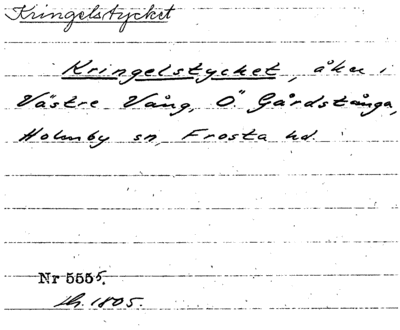 Kringelstycket
Kringelstycket, åker i
Västre Vång, Ö. Gårdstånga,
Holmby sn, Frosta hd.
Nr 5555.
Lh. 1805.